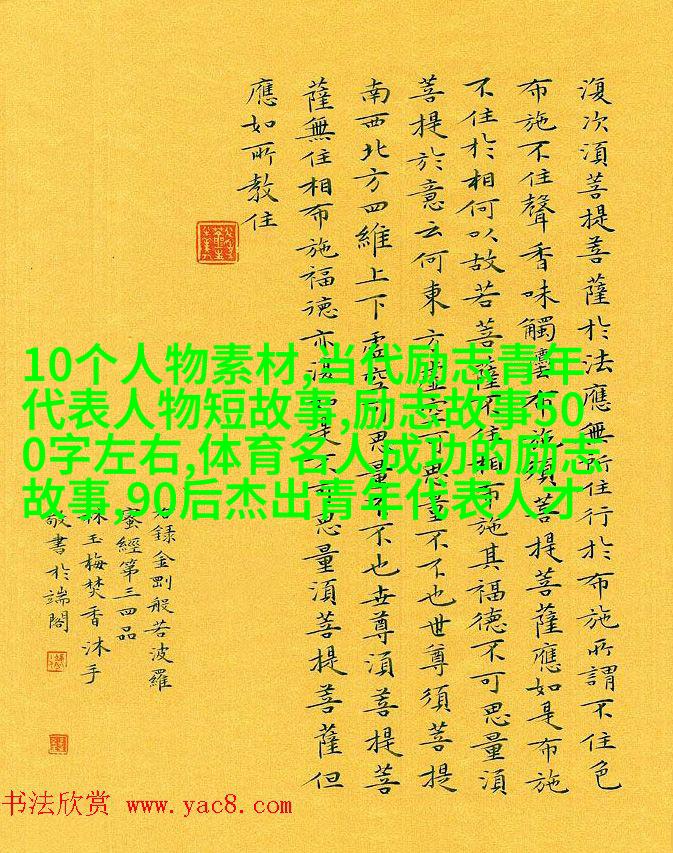 復次湏菩提菩薩於法應無所住行於布施所謂不住色
布施不住聲香味觸布施須菩提菩薩應如是布施
不住於相何以故若菩薩不住相布施其福德不可思量湏
菩提於意云何東方虛空可思量不不也世尊須菩提
南西北方四維上下虛空可思量不不也世尊湏菩提菩
薩無住相布施福德亦復是不可思量湏菩提菩薩但
應如所教住
錄金剛般若波羅
蜜經第三四品
林玉梅焚香沐手
敬書於端閣
10个人物素材,当代励志青年
代表人物短故事,励志故事50
0字左右,体育名人成功的励志
故事,90后杰出青年代表人才
书法欣赏 www.yac8.com